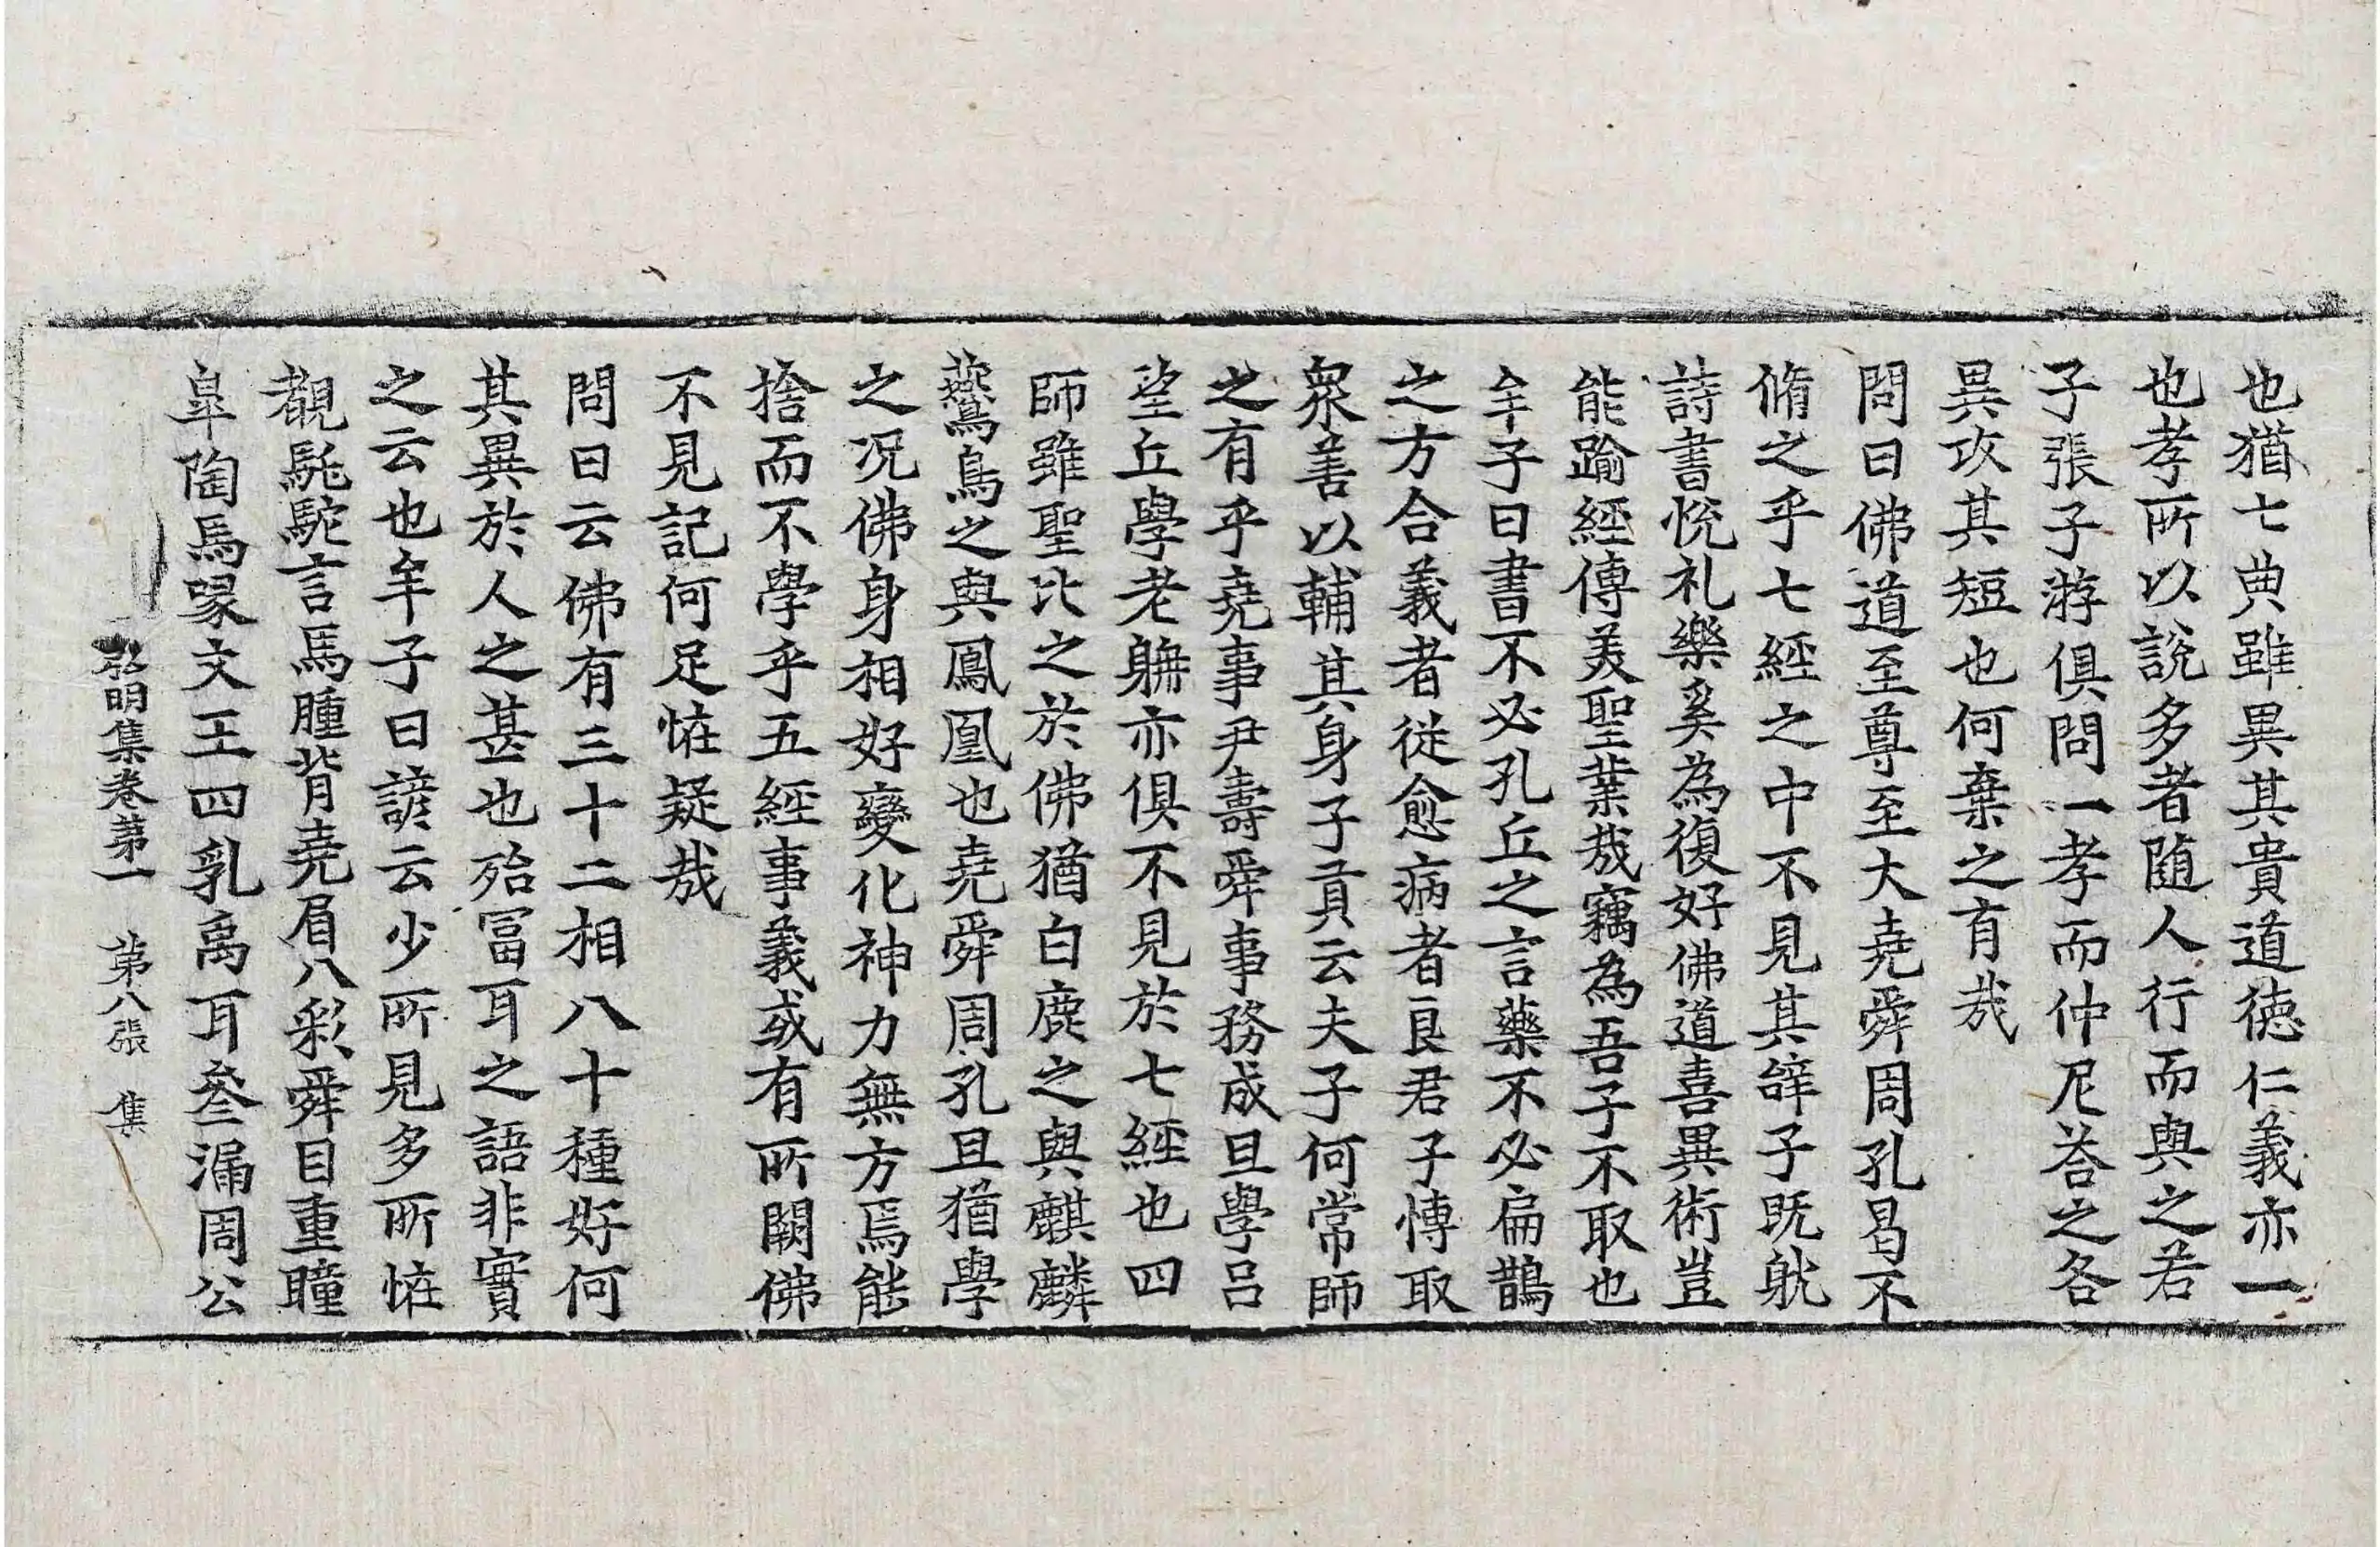 也猶七典雖異其貴道德仁義亦一
也孝所以說多者随人行而與之若
子張子游俱問一孝而仲尼荅之各
異攻其短也何棄之有㢤
問曰佛道至尊至大堯舜周孔曷不
脩之乎七經之中不見其辝子既躭
詩書悅礼樂奚為復好佛道喜異術豈
能踰經傳美聖業㢤竊為吾子不取也
牟子曰書不必孔丘之言藥不必扁鵲
之方合義者從愈病者良君子博取
衆善以輔其身子貢云夫子何常師
之有乎堯事尹壽舜事務成旦學呂
望丘學老聃亦俱不見於七經也四
師雖聖比之於佛猶白鹿之與麒麟
鷰鳥之與鳳凰也堯舜周孔且猶學
之况佛身相好變化神力無方焉能
捨而不學乎五經事義或有所闕佛
不見記何足恠疑㢤
問曰云佛有三十二相八十種好何
其異於人之甚也殆冨耳之語非實
之云也牟子曰諺云少所見多所恠
覩馲駝言馬腫背堯眉八彩舜目重瞳
皐陶馬喙文王四乳禹耳叁漏周公
弘明集卷第一 第八張 集